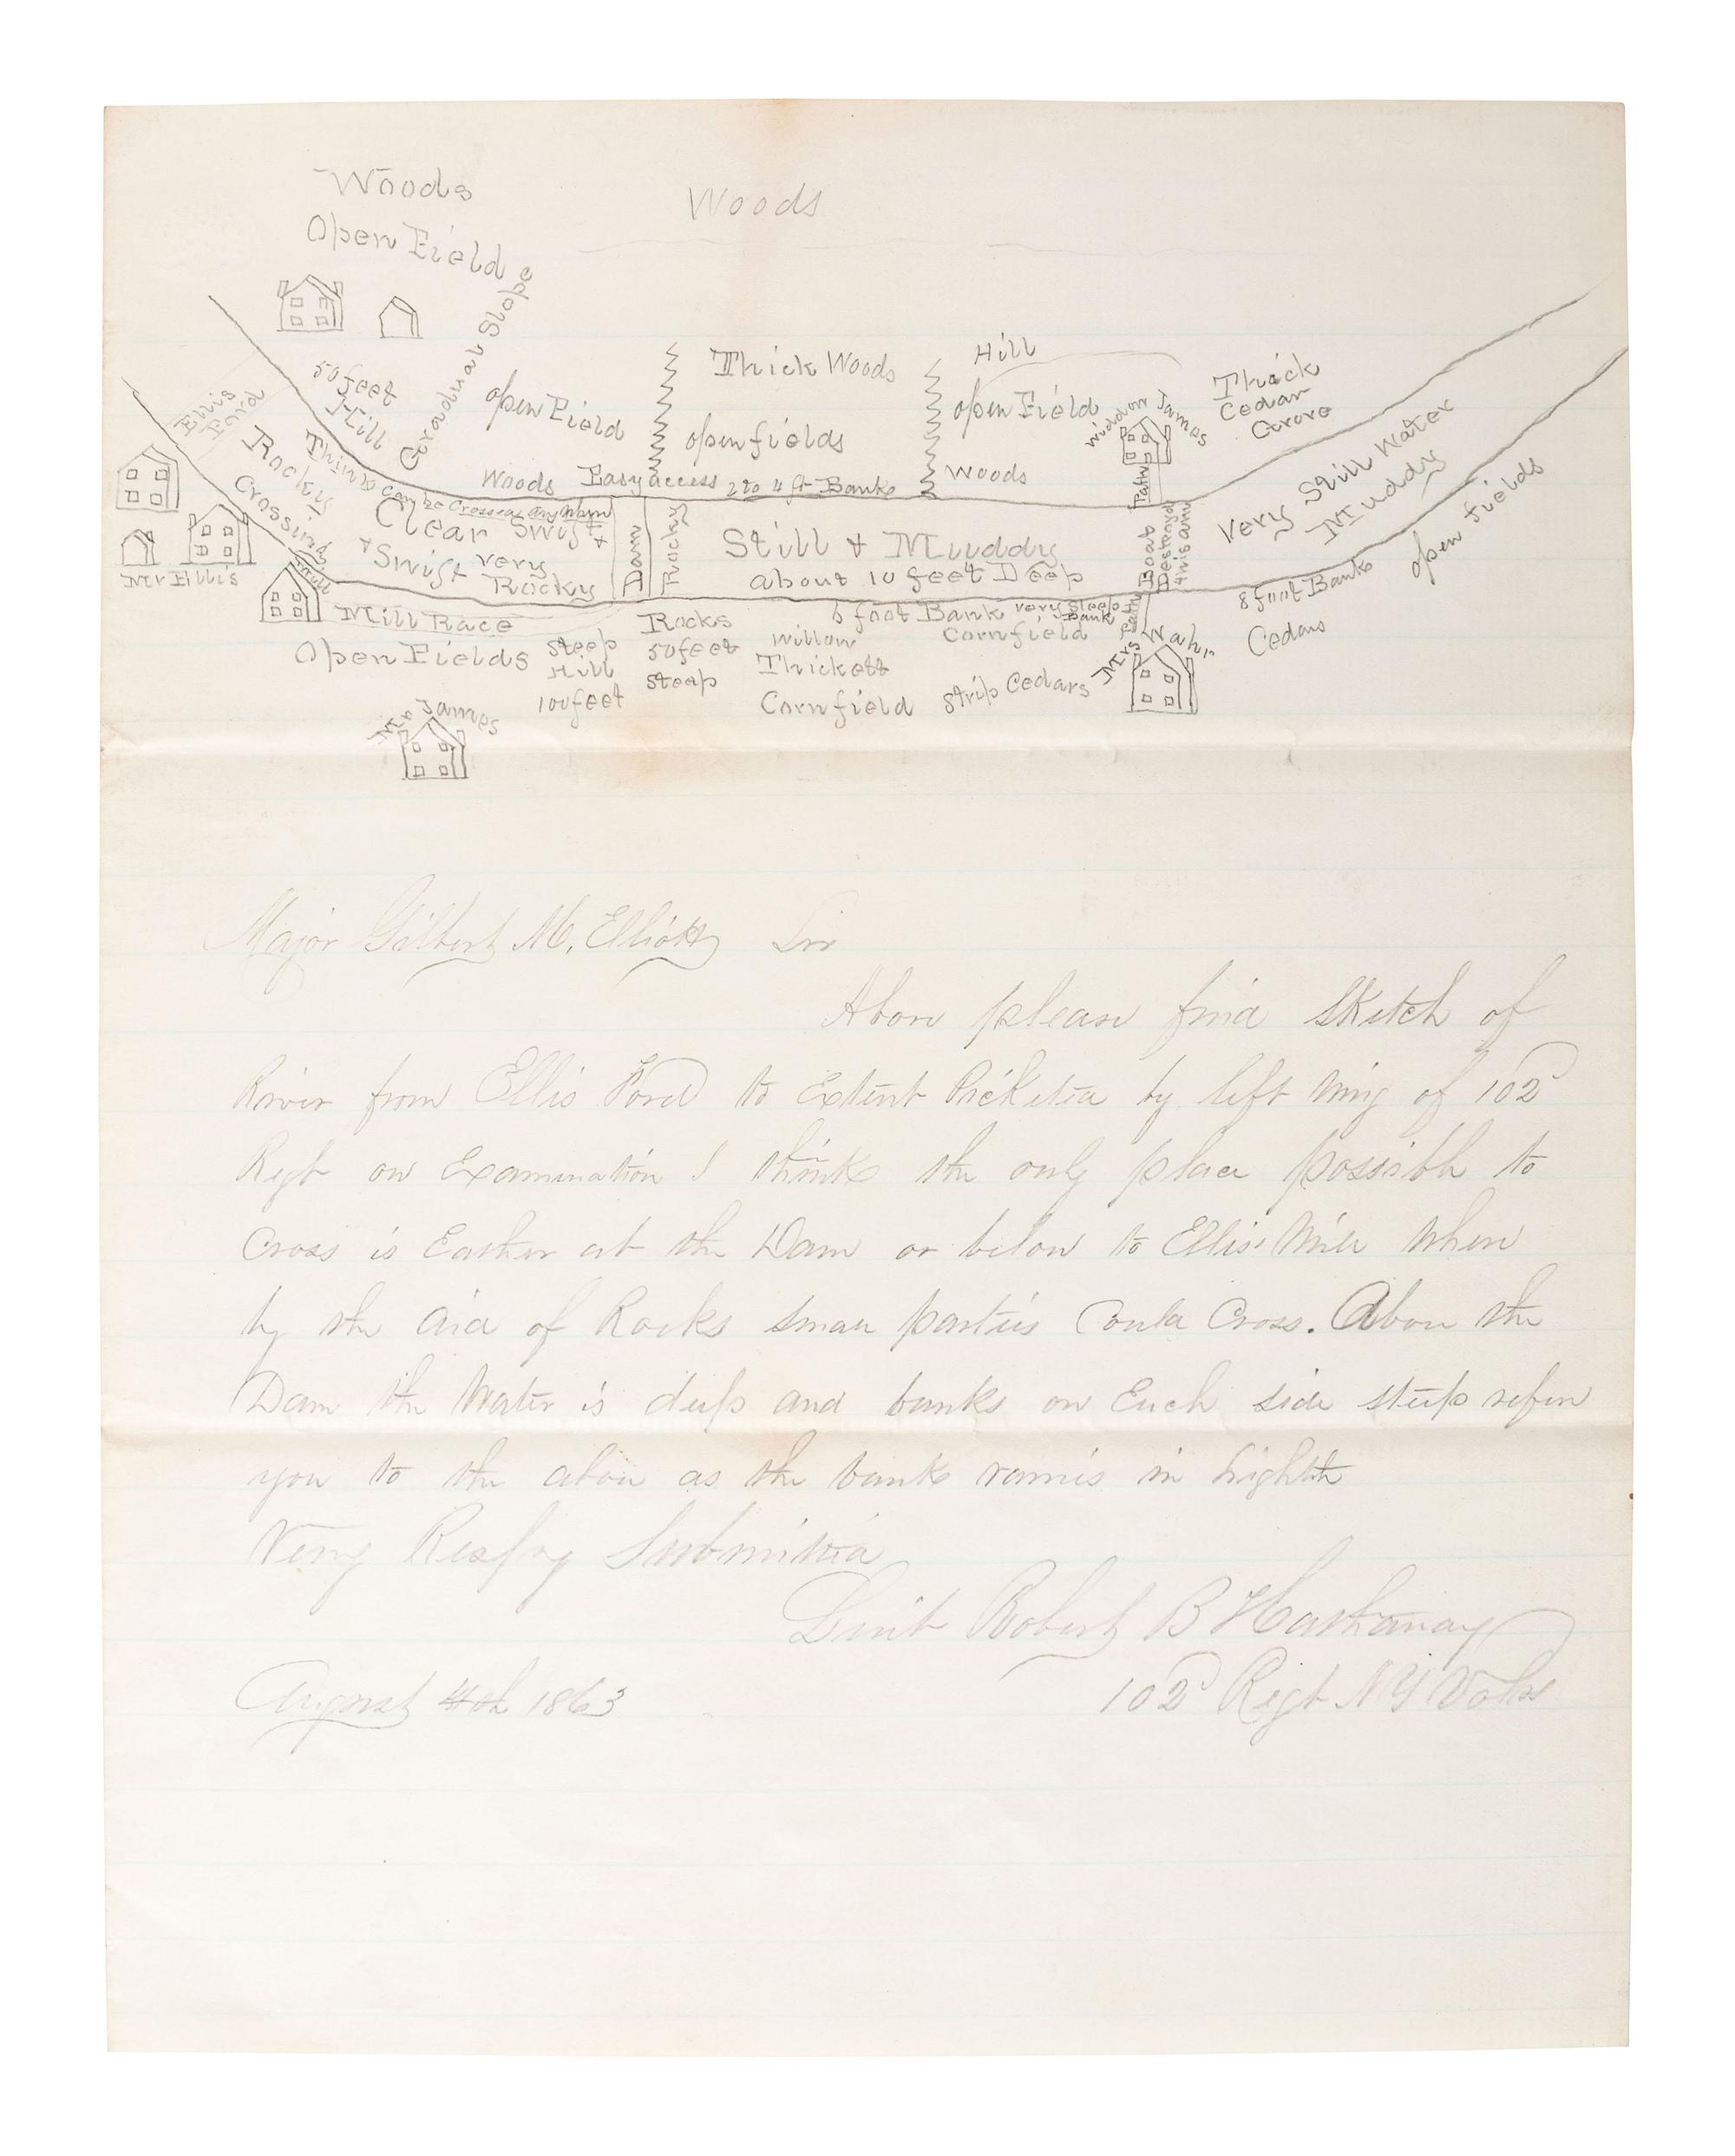 Woods
Woods
Open Field
Gradual Slope
50 feet
Hill
open Field
Thick Woods
open fields
Hill
open Field
Widow James
Thick
Cedar
Grove
Ellis
Ford
Rocky
Crossing
Think can be Crossed any where
Woods Easy access 2 to 4 ft Banks
Woods
Path
Clear Swift
+ Swift very
Rocky
Dam
Rocky
Still + Muddy
about 10 feet Deep
Boat
Destroyed
this am
Very Still Water
Muddy
open fields
Mr Ellis
Mill
Mill Race
Open Fields
steep
Hill
100 feet
Rocks
50 feet
steep
6 foot Bank very steep
Bank
Willow
Thickett
Cornfield
Cornfield
strip Cedars
Path
Mrs Wahr
8 foot Banks
Cedars
Mr James
Major Gilbert M. Elliott Sir
Above please find sketch of
River from Ellis Ford to Extent Picketed by left wing of 102d
Regt on Examination I think the only place possible to
Cross is Eather at the Dam or below to Ellis' Mill when
by the aid of Rocks small parties Could Cross. Above the
Dam the Water is deep and banks on Each side steep refer
you to the above as the banks varies in highth
Very Respfy Submitted
Leiut Robert B Hathaway
102d Regt NY Vols
August 4th 1863